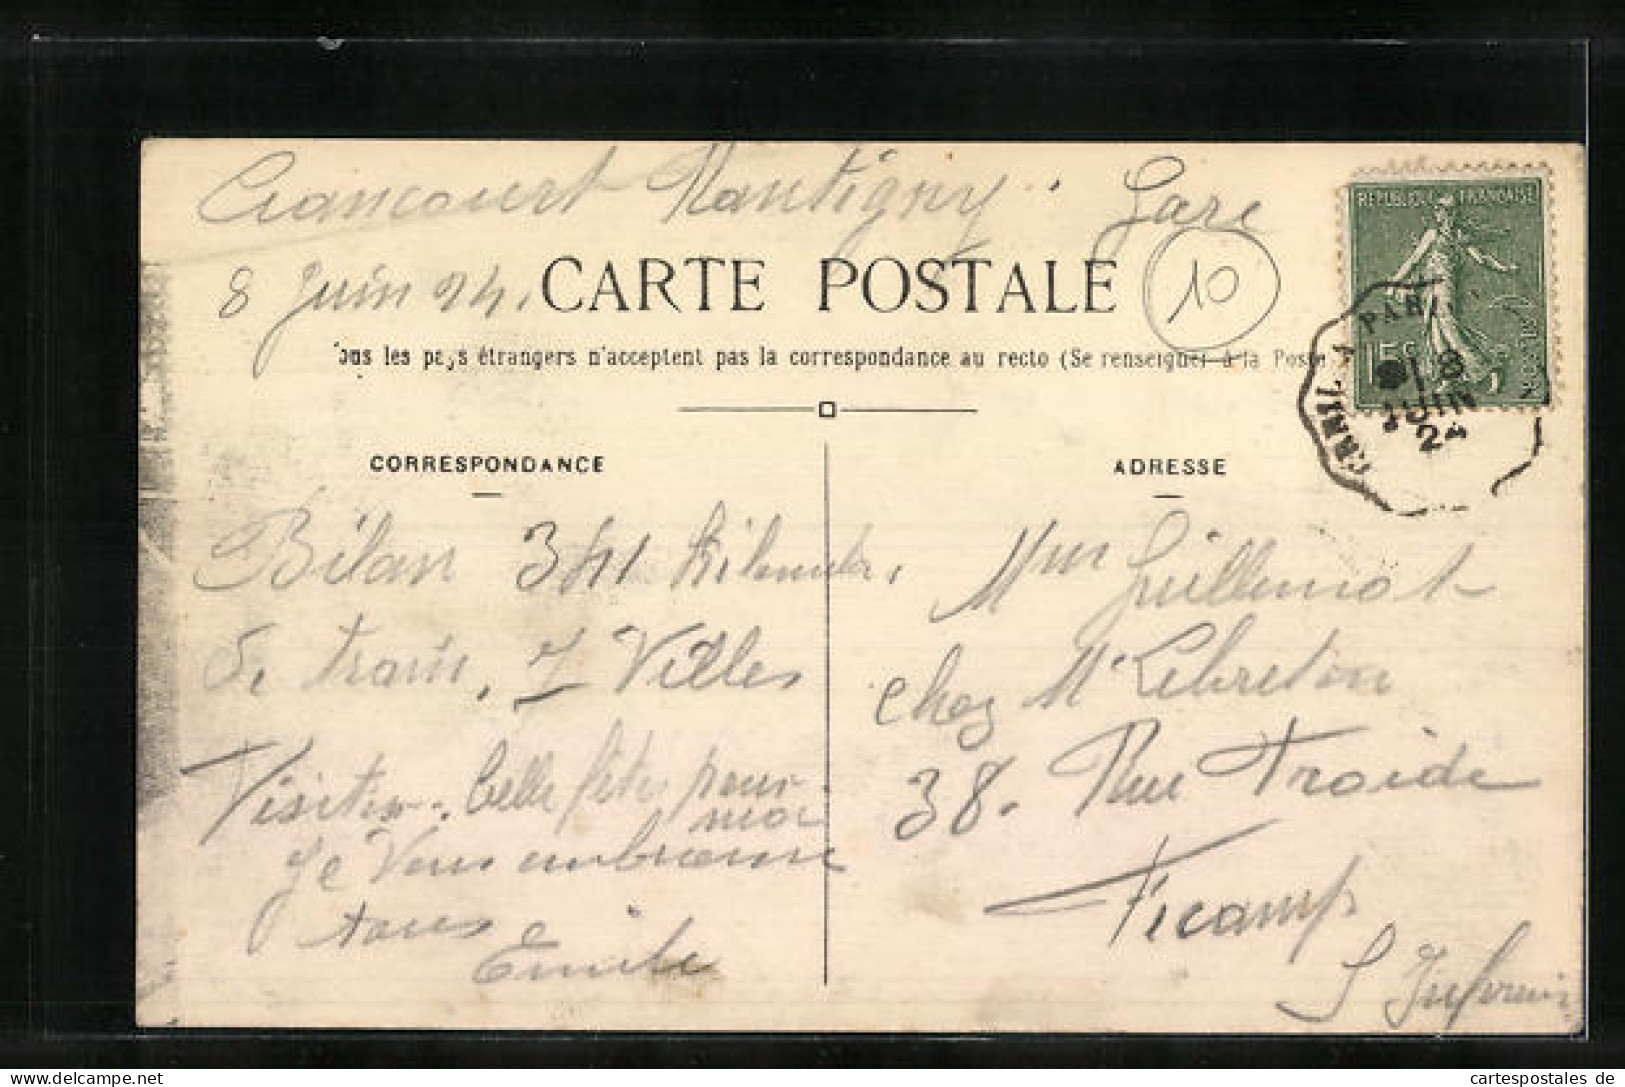 Trancourt Montigny. Gare
8 Juin 24.
CARTE POSTALE
Tous les pays étrangers n'acceptent pas la correspondance au recto (Se renseigner à la Poste
10
REPUBLIQUE FRANÇAISE
15c
A PARI
8
JUIN
24
CORRESPONDANCE
Bilan 341 Kilometr.
de train, 7 Villes
Visiter. belle fêtes pour
moi
Je Vous embrasse
tous
Emile
ADRESSE
Mme Guillemot
chez Mr Lebreton
38. Rue Froide
Fecamp
S Inferieur
cartespostales de